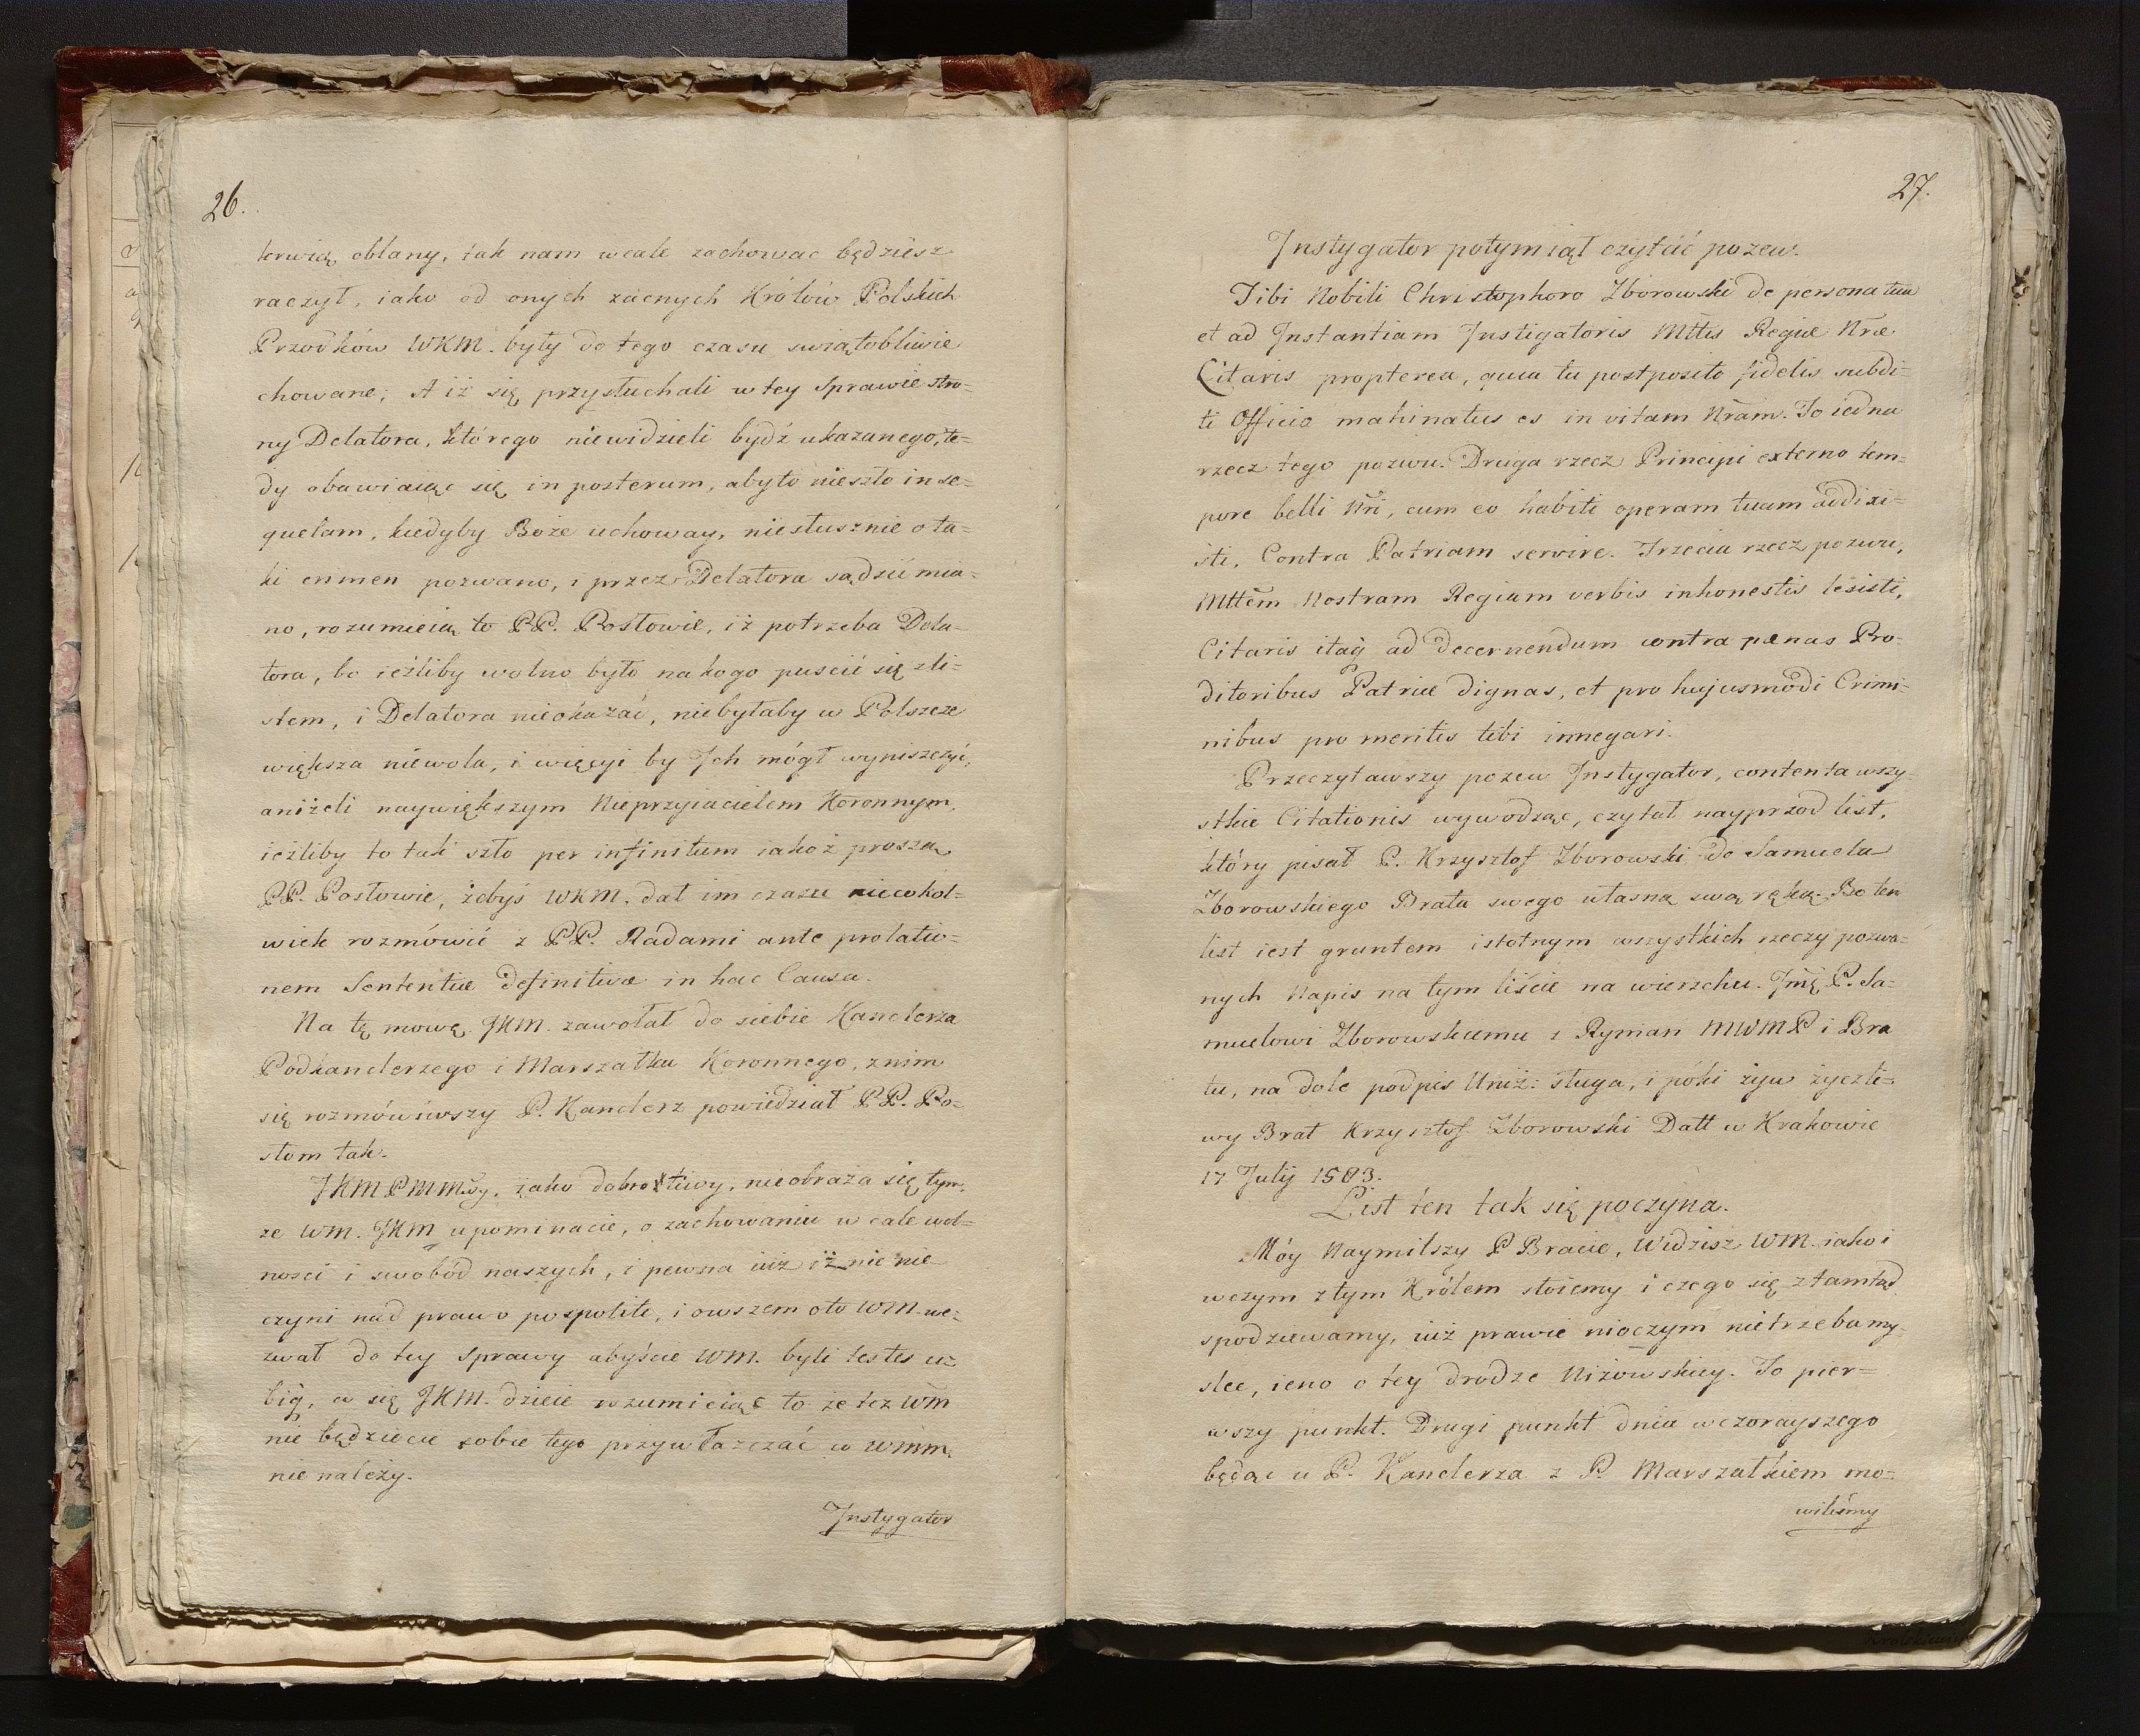 26.
krwią oblany, tak nam wcale zachować będziesz
raczył, iako od onych zacnych Królów Polskich
Przodków WKM. były do tego czasu swiątobliwie
chowane; A iż się przysłuchali w tey Sprawie stro-
ny Delatora, którego niewidzieli bydź ukazanego, te-
dy obawiaiąc się in posterum, aby to nieszło in se-
quelam, kiedyby Boże uchoway, niesłusznie o ta-
ki crimen pozwano, i przez Delatora sądzić mia-
no, rozumieią to PP. Posłowie, iż potrzeba Dela-
tora, bo ieżliby wolno było na kogo puscić się z li-
stem, i Delatora nieokazać, niebyłaby w Polszcze
większa niewola, i więcyi by Ich mógł wyniszczyć,
aniżeli naywiększym Nieprzyiacielem Koronnym,
ieżliby to tak szło per infinitum iakoż proszą
PP. Posłowie, żebyś WKM. dał im czasu niecokol-
wiek rozmówić z PP. Radami ante prolatio-
nem Sententiæ definitivæ in hac Causa.
Na tę mowę JKM. zawołał do siebie Kanclerza
Podkanclerzego i Marszałka Koronnego, z nim
się rozmówiwszy P. Kanclerz powiedział PP. Po-
słom tak.
JKM PMMwy, iako dobrotliwy, nieobraża się tym,
ze WM. JKM upominacie, o zachowaniu w cale wol-
nosci i swobód naszych, i pewna iuż iż nic nie
czyni nad prawo pospolite, i owszem oto WM. we-
zwał do tey sprawy abyście WM. byli testes
big, a się JKM. dzieie rozumieiąc to że tez WM
nie będziecie sobie tego przywłaszczać co WMM.
nie należy.
Instygator
27.
Instygator potym iął czytać pozew.
Tibi Nobili Christophoro Zborowski de persona tua
et ad Instantiam Instigatoris Mttis Regiæ Nræ
Citaris propterea, quia tu postposito fidelis subdi-
ti Officio mahinatus es in vitam Nram. To iedna
rzecz tego pozwu. Druga rzecz Principi externo tem-
pore belli Nri, cum eo habiti operam tuam addixi-
sti, Contra Patriam servire. Trzecia rzecz pozwu,
Mttem Nostram Regiam verbis inhonestis lesisti,
Citaris itaq ad decernendum contra pænas Pro-
ditoribus Patriæ dignas, et pro hujusmodi Crimi-
nibus pro meritis tibi innegari.
Przeczytawszy pozew Instygator, contenta wszy-
stkie Citationis wywodząc, czytał nayprzod list,
który pisał P. Krzysztof Zborowski do Samuela
Zborowskiego Brata swego własną swą ręką. Bo ten
list iest gruntem istotnym wszystkich rzeczy pozwa-
nych Napis na tym liście na wierzchu. Jmę P. Sa-
muelowi Zborowskiemu z Ryman MWMP i Bra
tu, na dole podpis Uniż: sługa, i póki żyw życzli-
wy Brat Krzysztof Zborowski Datt w Krakowie
17 Julij 1583.
List ten tak się poczyna.
Móy Naymilszy P Bracie, Widzisz WM. iako i
wczym z tym Królem stoiemy i czego się ztamtąd
spodziewamy, iuż prawie nioczym nietrzeba my-
slec, ieno o tey drodze Niżowskiey. To pier-
wszy punkt. Drugi punkt dnia wczorayszego
będąc u P. Kanclerza z P. Marszałkiem mo-
wiliśmy